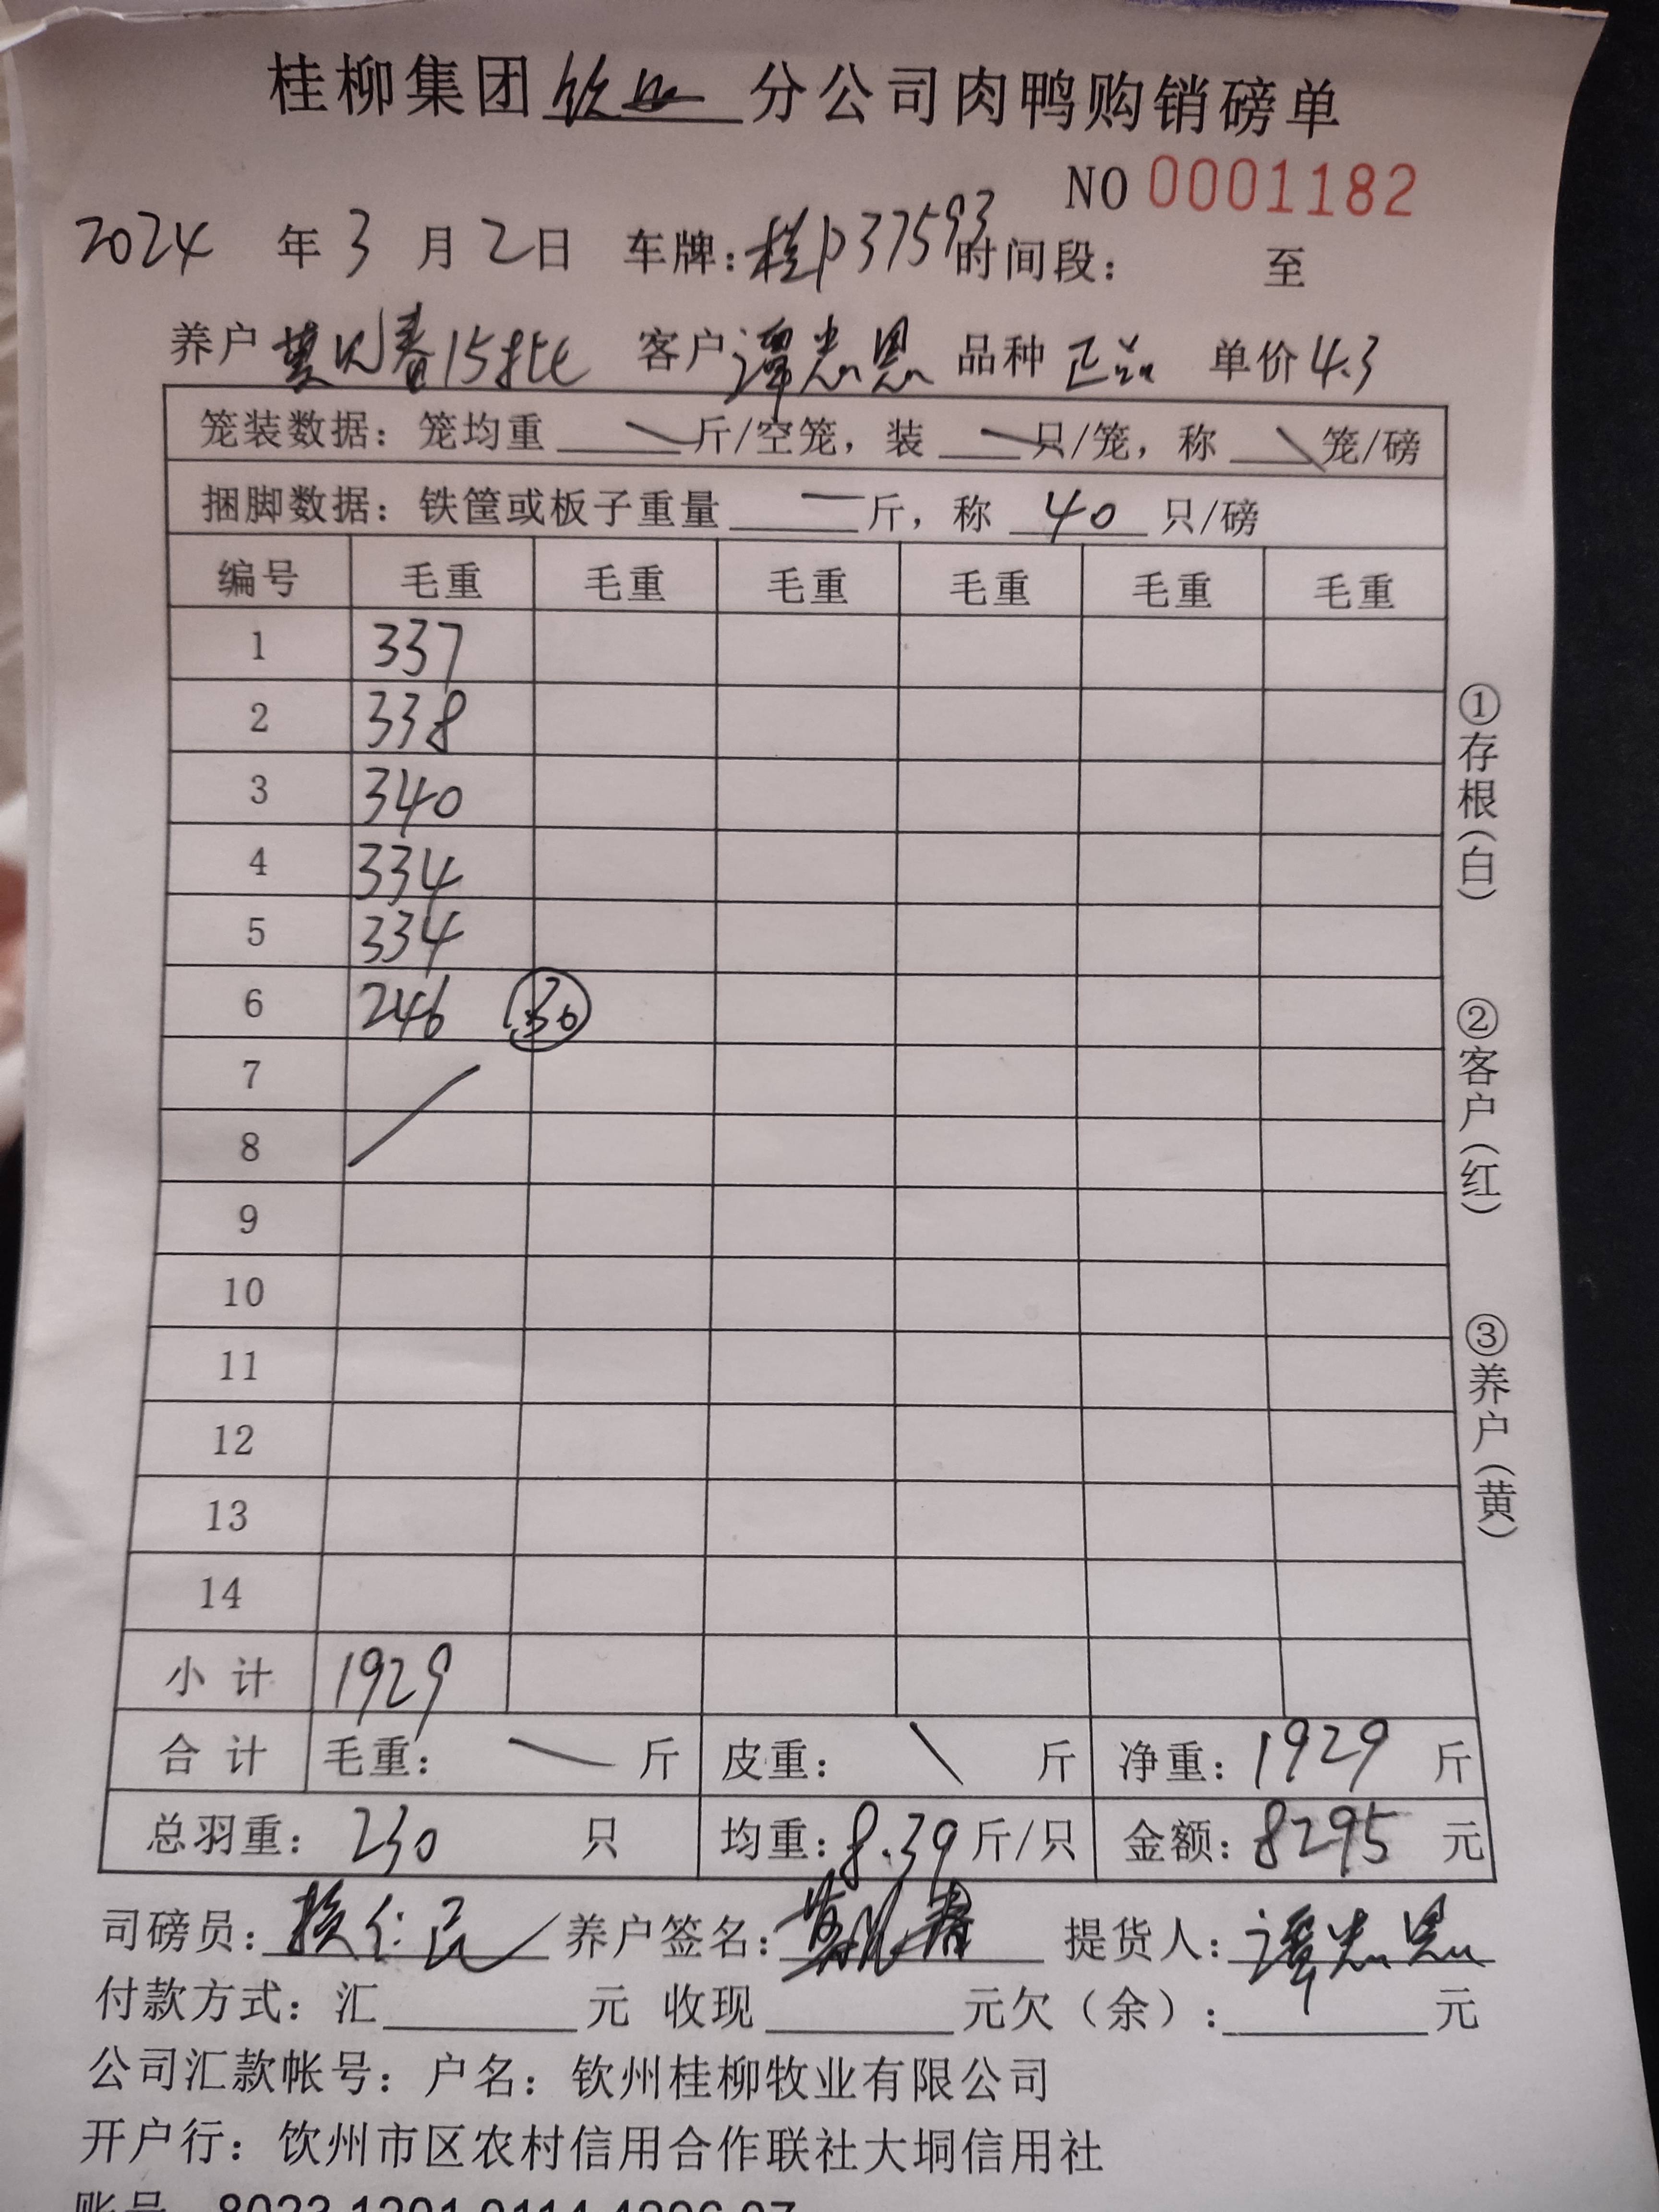 桂柳集团钦州分公司肉鸭购销磅单
NO 0001182
2024 年 3 月 2 日 车牌:桂P37593 时间段: 至
养户 春15批 客户 谭忠恩 品种 正 单价 4.3
笼装数据: 笼均重 斤/空笼, 装 只/笼, 称 笼/磅
捆脚数据: 铁筐或板子重量 斤, 称 40 只/磅
编号 毛重 毛重 毛重 毛重 毛重 毛重
1 337
2 338
3 340
4 334
5 334
6 246 30
7
8
9
10
11
12
13
14
小计 1929
合计 毛重: 斤 皮重: 斤 净重: 1929 斤
总羽重: 230 只 均重: 8.39 斤/只 金额: 8295 元
司磅员: 仁民 养户签名: 春 提货人: 谭忠恩
付款方式: 汇 元 收现 元欠(余): 元
公司汇款帐号: 户名: 钦州桂柳牧业有限公司
开户行: 饮州市区农村信用合作联社大垌信用社
①存根(白)
②客户(红)
③养户(黄)